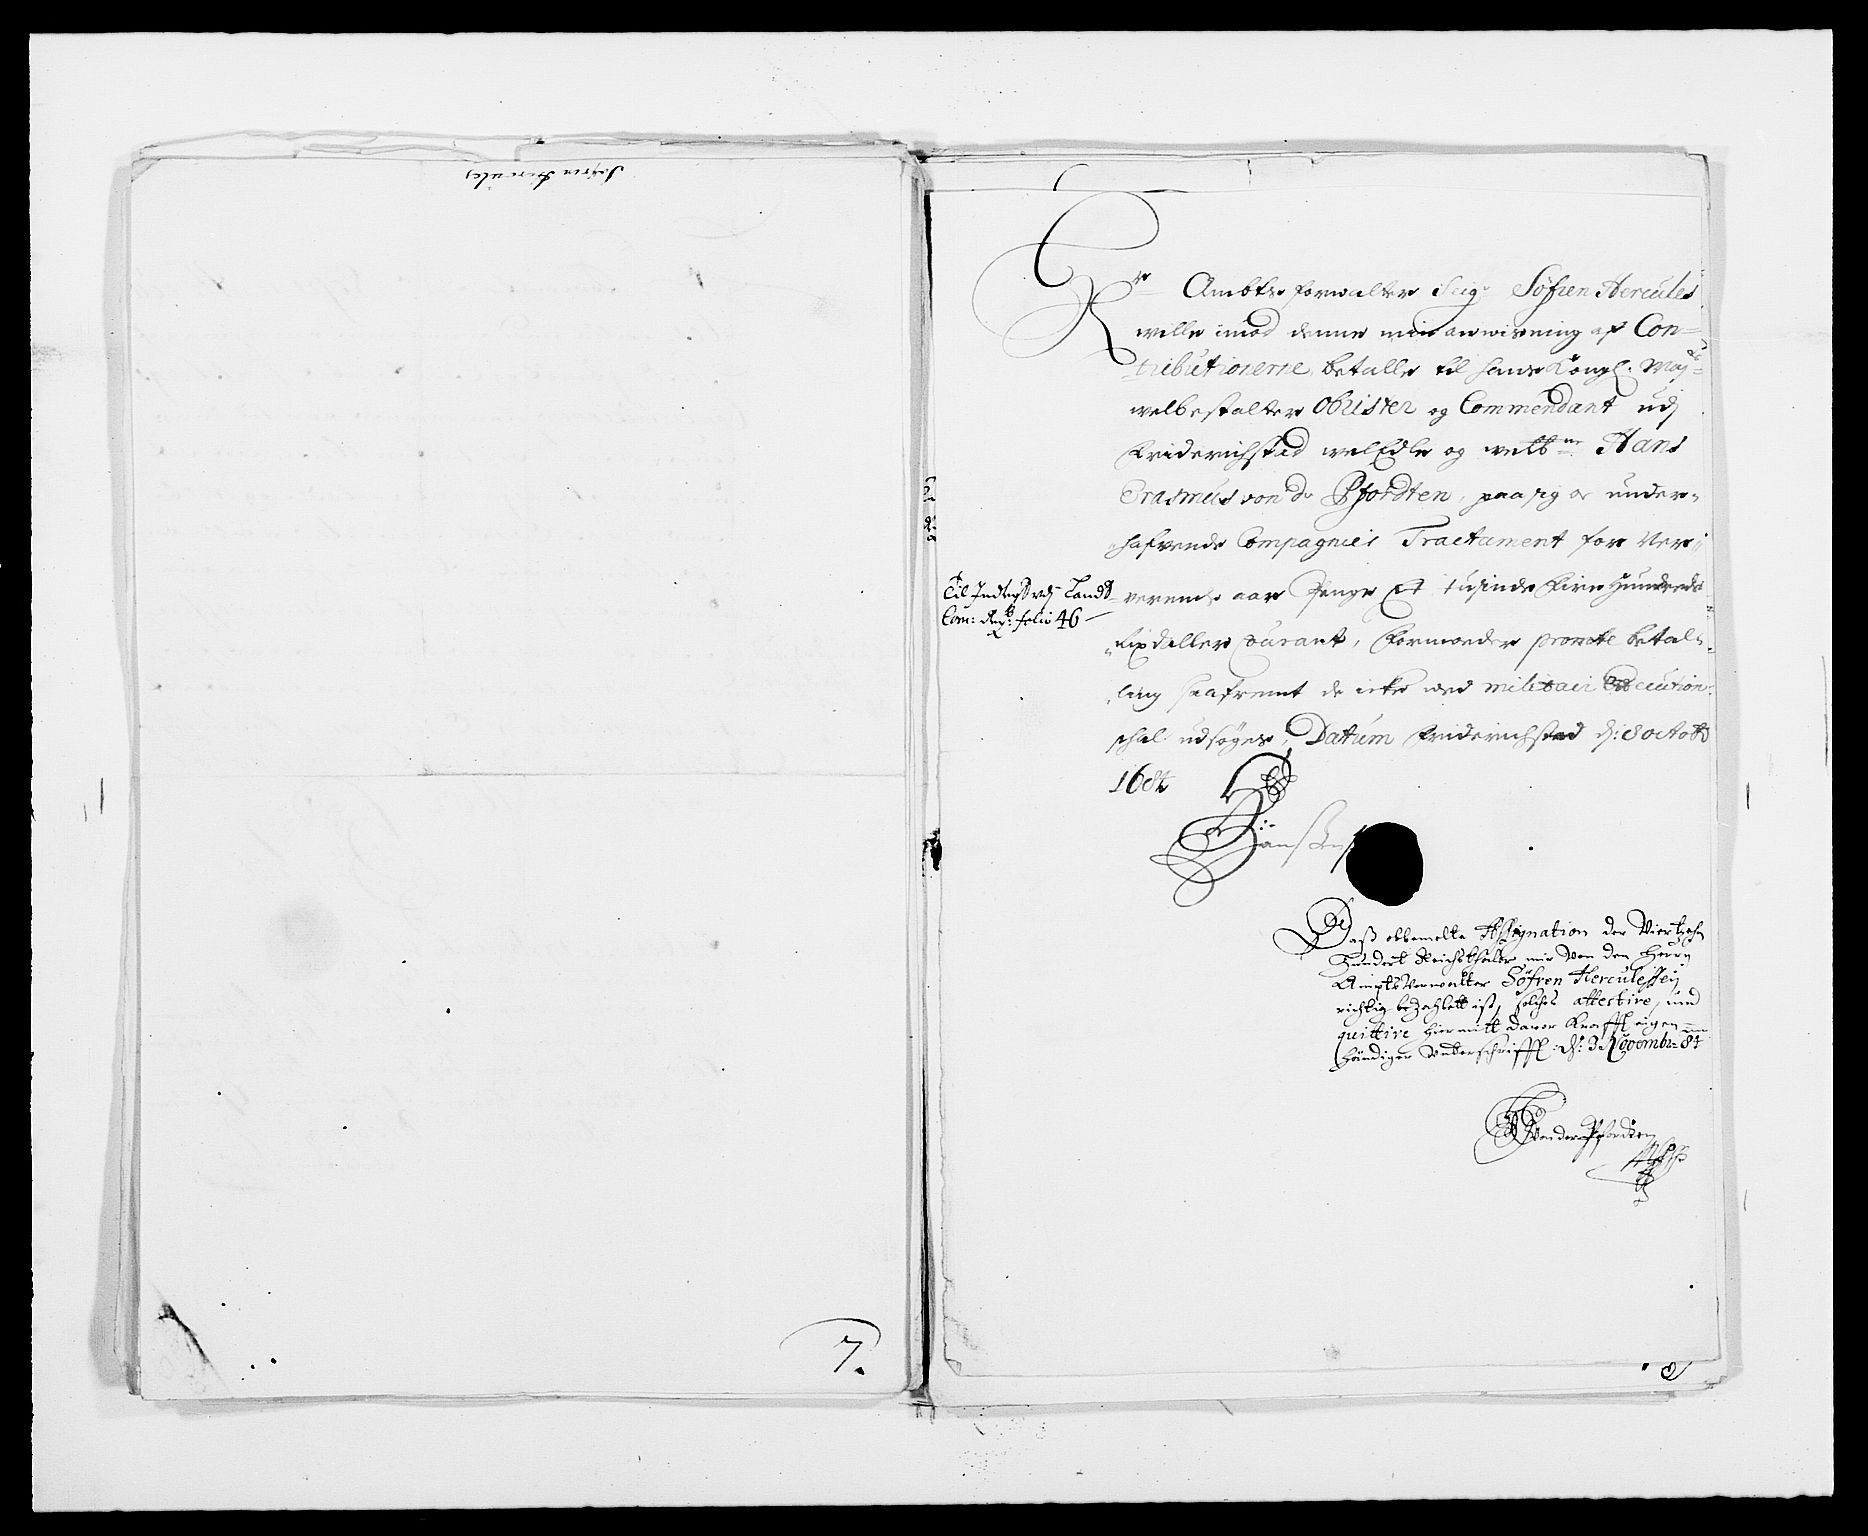 Søfren Hercules
7.
Hr Ambts forwalter Seigr Søfren Hercules
wille imod denne min anwisning af Con=
tributionerne, betalle til hans Kongl. Mayts
welbestalter Obrister og Commendant udj
Friderichstad welEdle og welbne Hans
Erasmus von der Pfordten, paa sig og under=
hafvende Compagnies Tractament for Ner=
verende aar Penge Et tusinde Fire Hundrede
Rixdaller Courant, Formoder promte betal=
ling saafremt de icke wed militair Execution
schal udsøges, Datum Friderichstad d: 8 octob
1684
Til Indtegt udj Landt
Com: Reg: folio 46
Daß obbemelte Assignation der Viertzehn
Hundert Reichsthaler mir von den Herrn
Ampts Verwalter Søfren Herculessen
richtig bezahlett ist, solches attestire, und
quittire hiermitt davor Krafft eigen
händiger Unterschrifft. d: 3 Novembr: 84
Von der Pfordten